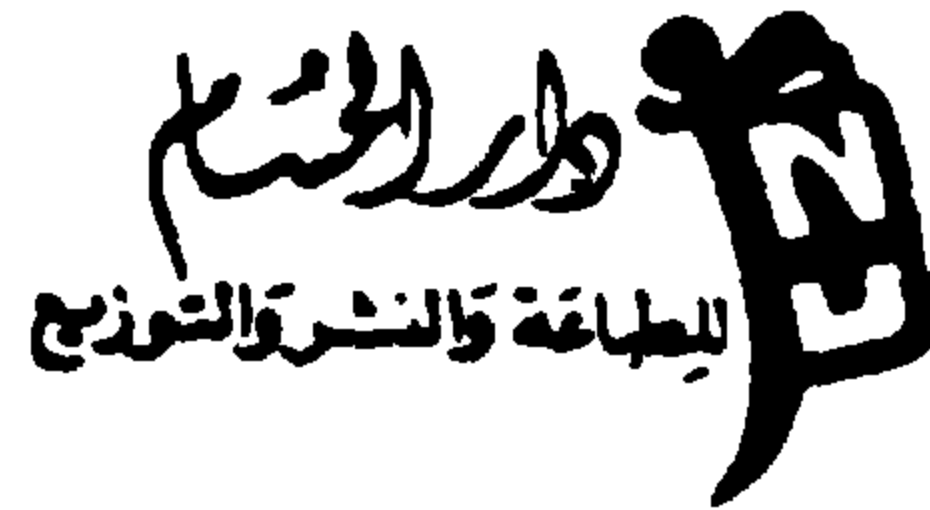 دار الحسام
للطباعة والنشر والتوزيع